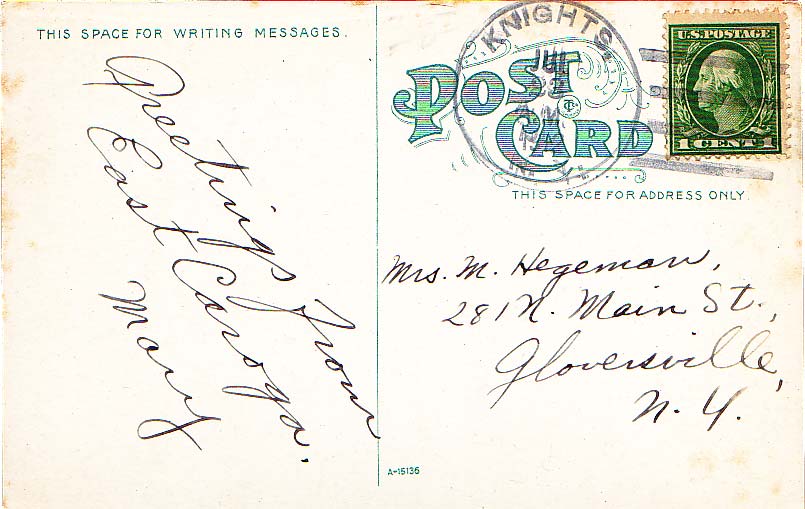 THIS SPACE FOR WRITING MESSAGES.
Greetings from
East Caroga.
Mary
KNIGHTS
JUL
22
N.Y.
POST
CARD
U.S. POSTAGE
1 CENT 1
THIS SPACE FOR ADDRESS ONLY.
Mrs. M. Hegeman,
281 N. Main St.,
Gloversville,
N.Y.
A-15136